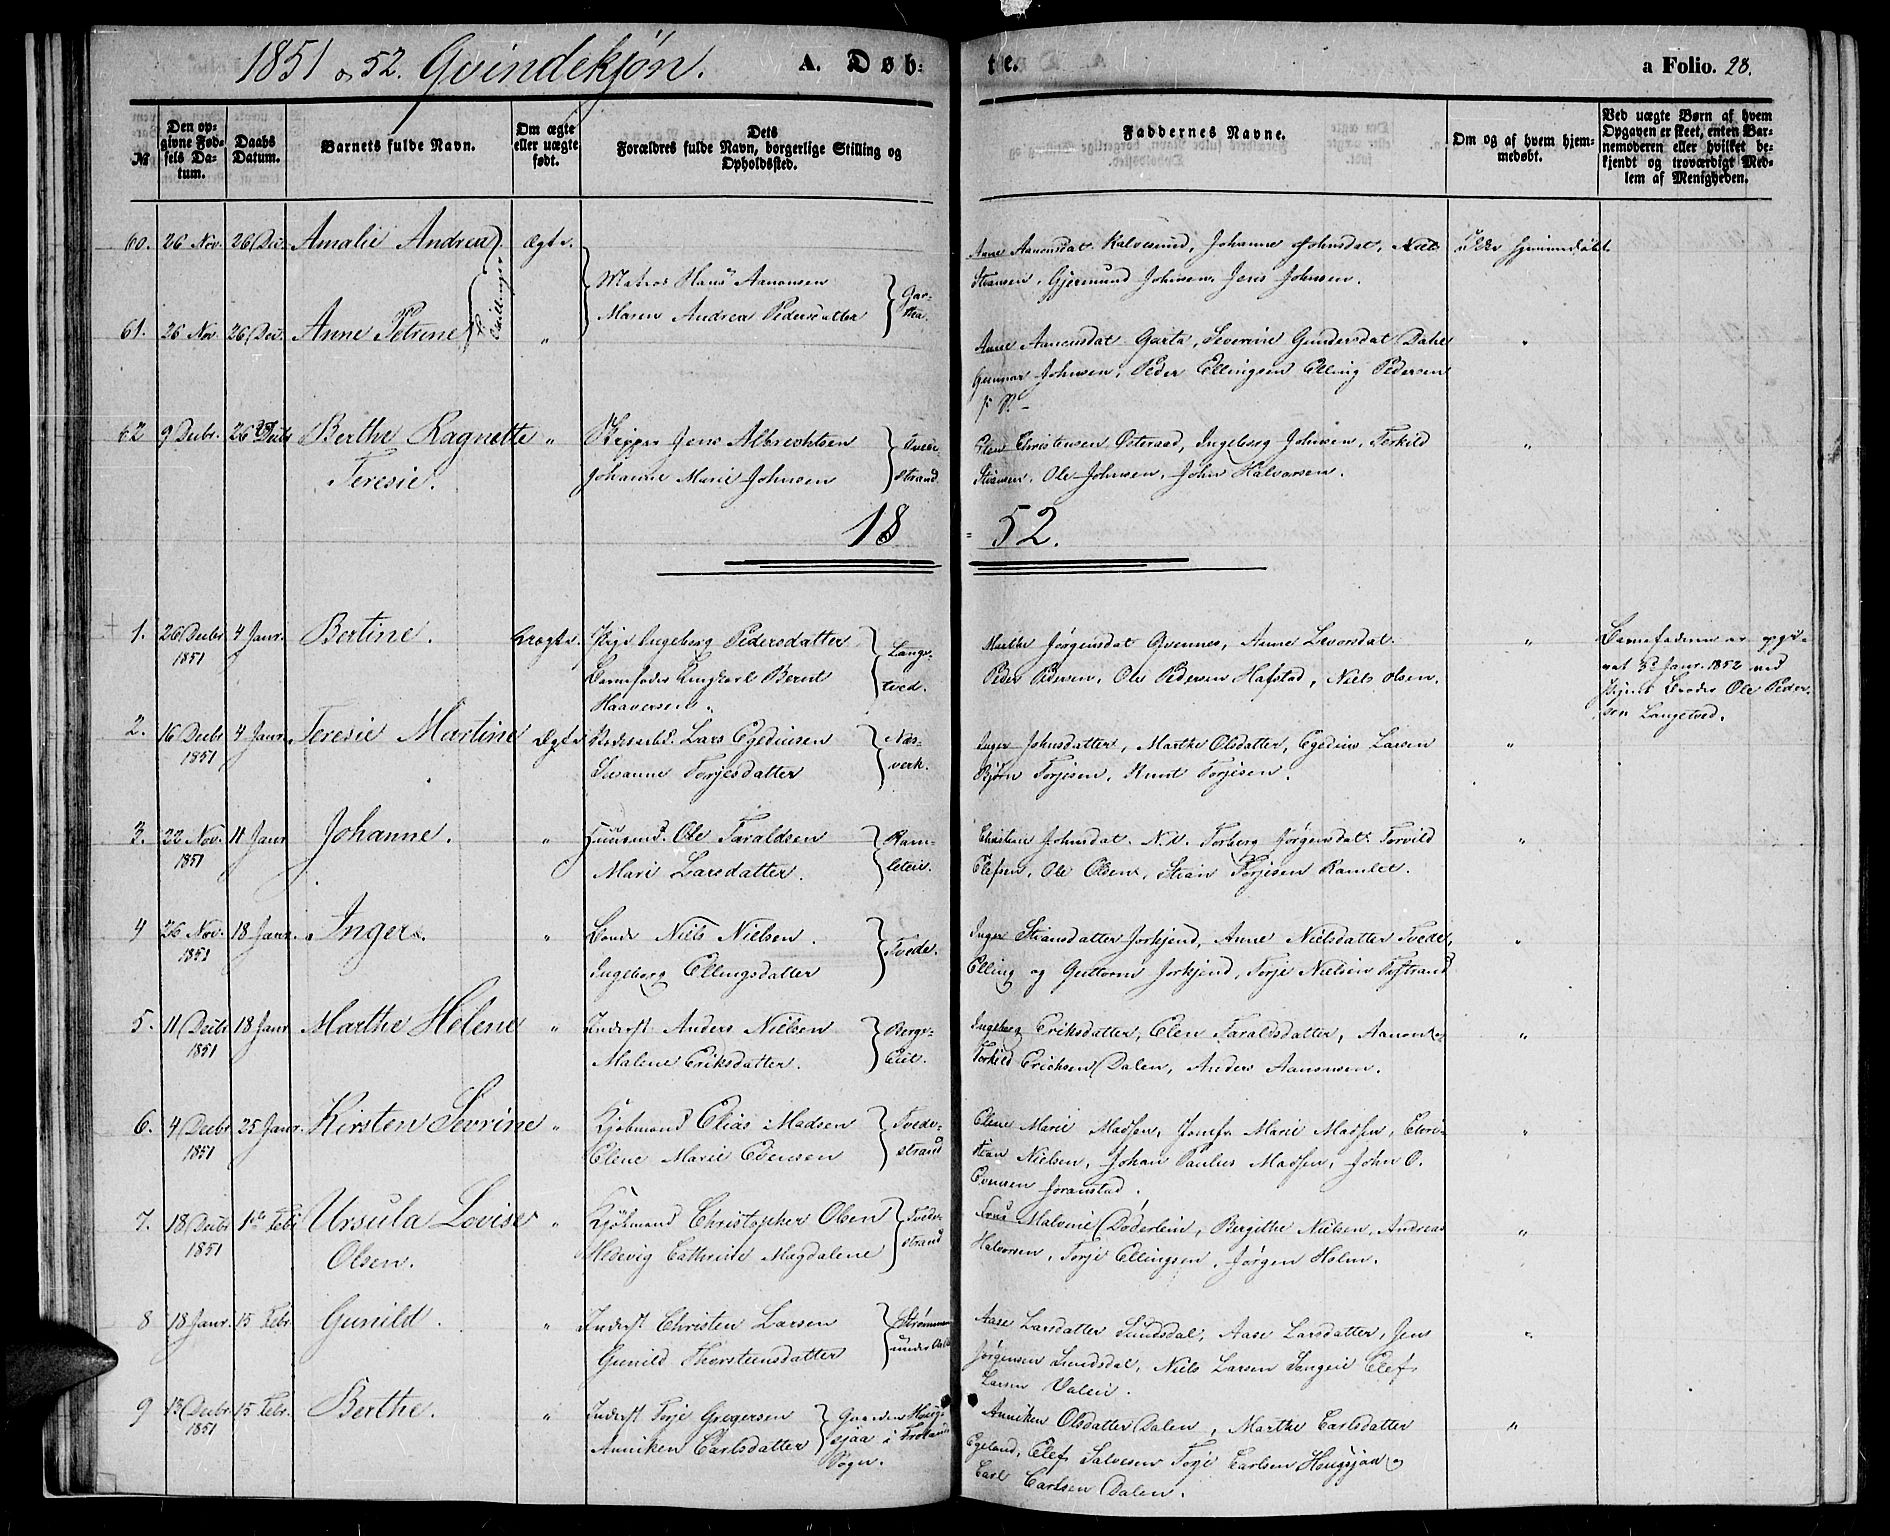 1851 & 52. Qvindekjøn. A. Døb- te. a Folio. 28.
№
Den op-
givne Fød-
sels Da-
tum.
Daabs
Datum.
Barnets fulde Navn.
Om ægte
eller uægte
født.
Dets
Forældres fulde Navn, borgerlige Stilling og
Opholdssted.
Faddernes Navne.
Om og af hvem hjem-
medøbt.
Ved uægte Børn af hvem
Opgaven er skeet, enten Bar-
nemoderen eller hvilket be-
kjendt og troværdigt Med-
lem af Menigheden.
60. 26 Nov. 26 Dec. Amalie Andrea Ægte.
Tvillinger
Matros Hans Aanonsen
Maren Andrea Pedersdatter
Gar-
tha.
Anne Aanonsdat Kalvesund, Johanne Johnsdat, Niels
Stiansen, Gjermund Johnsen, Jens Johnsen.
ikke hjemmedøbt
61. 26 Nov. 26 Dec. Anne Petrine "
Anne Aanonsdat Garta, Severine Gundersdat Dahl
Gunnar Johnsen, Peder Ellingsen Elling Pedersen
"
62 9 Decbr. 26 Decbr Berthe Ragnette
Teresie.
" Skipper Jens Albrechtsen
Johanne Marie Johnsen
Tvede-
strand
Elen Christensen Osteraad, Ingeborg Johnsen, Terkild
Stiansen, Ole Johnsen, John Halvorsen.
"
18 52.
1. 26 Decbr. 4 Janr. Bertine. Uægte.
1851
Pige Ingeborg Pedersdatter
Barnefader Ungkarl Bernt
Haaversen.
Lange-
tved.
Marthe Jørgensdat Qvennes, Anne Levorsdat
Peder Pedersen, Ole Pedersen Hafstad, Niels Olsen.
"
Barnefaderen er opgi-
vet 3d Janr. 1852 ved
Pigens Broder Ole Peder-
sen Langetved.
2. 16 Decbr 4 Janr. Teresie Martine Ægte
1851
Lars Egediusen
Susanne Torjesdatter
Næs-
verk.
Inger Johnsdatter, Marthe Olsdatter, Egedius Larsen
Bjørn Torjesen, Knut Torjesen.
"
3. 22 Nov. 11 Janr Johanne. "
1851
Huusmd. Ole Taraldsen
Mari Larsdatter.
Ram-
sletein.
Christine Johnsdat. N.N. Torberg Jørgensdat. Torvild
Elefsen, Ole Olsen, Stian Torjesen Ramlet.
"
4 26 Nov. 18 Janr. Inger. "
1851
Bonde Niels Nielsen.
Ingeborg Ellingsdatter
Tvede.
Inger Stiansdatter Jorkjend, Anne Nielsdatter Tvede,
Elling og Guttorm Jorkjend, Torje Nielsen
"
5. 11 Decbr 18 Janr Marthe Helene "
1851
Inderst Anders Nielsen
Malene Eriksdatter.
Berge-
Eiet.
Ingeborg Eriksdatter, Elen Taraldsdatter, Aanon og
Torkild Erichsen Dalen, Anders Aanonsen.
"
6. 4 Decbr 25 Janr. Kirsten Sevrine "
1851
Kjøbmand Elias Madsen
Elene Marie Evensen
Tvede-
strand
Elene Marie Madsen, Jomfr Marie Madsen, Chri-
stian Nielsen, Johan Paulus Madsen, John O.
Evensen Joranstad.
"
7. 18 Decbr 1ste Feb Ursula Lovise "
1851
Olsen.
Kjøbmand Christopher Olsen
Hedevig Cathrine Magdalene
Tvede-
strand
Frue Malvine Døderlein, Bergithe Nielsen, Andreas
Halvorsen, Torje Ellingsen, Jørgen Holm.
"
8 18 Janr. 15 Febr. Gunild. "
Inderst Christen Larsen
Gunild Thorsteinsdatter
Strømmen
under
Aase Larsdatter Sundsdal, Aase Larsdatter, Jens
Jørgensen Sundsdal, Niels Larsen Songeie Elef
Larsen Valeie.
"
9 13 Decbr 15 Febr. Berthe. "
1851
Inderst Torje Gregersen
Anniken Carlsdatter
Gaarden Houg-
sjaa i Froland
Sogn.
Anniken Olsdatter Dalen, Marthe Carlsdatter
Egeland, Elef Salvesen Torje Carlsen Hougsjaa og
Carl Carlsen Dalen.
"